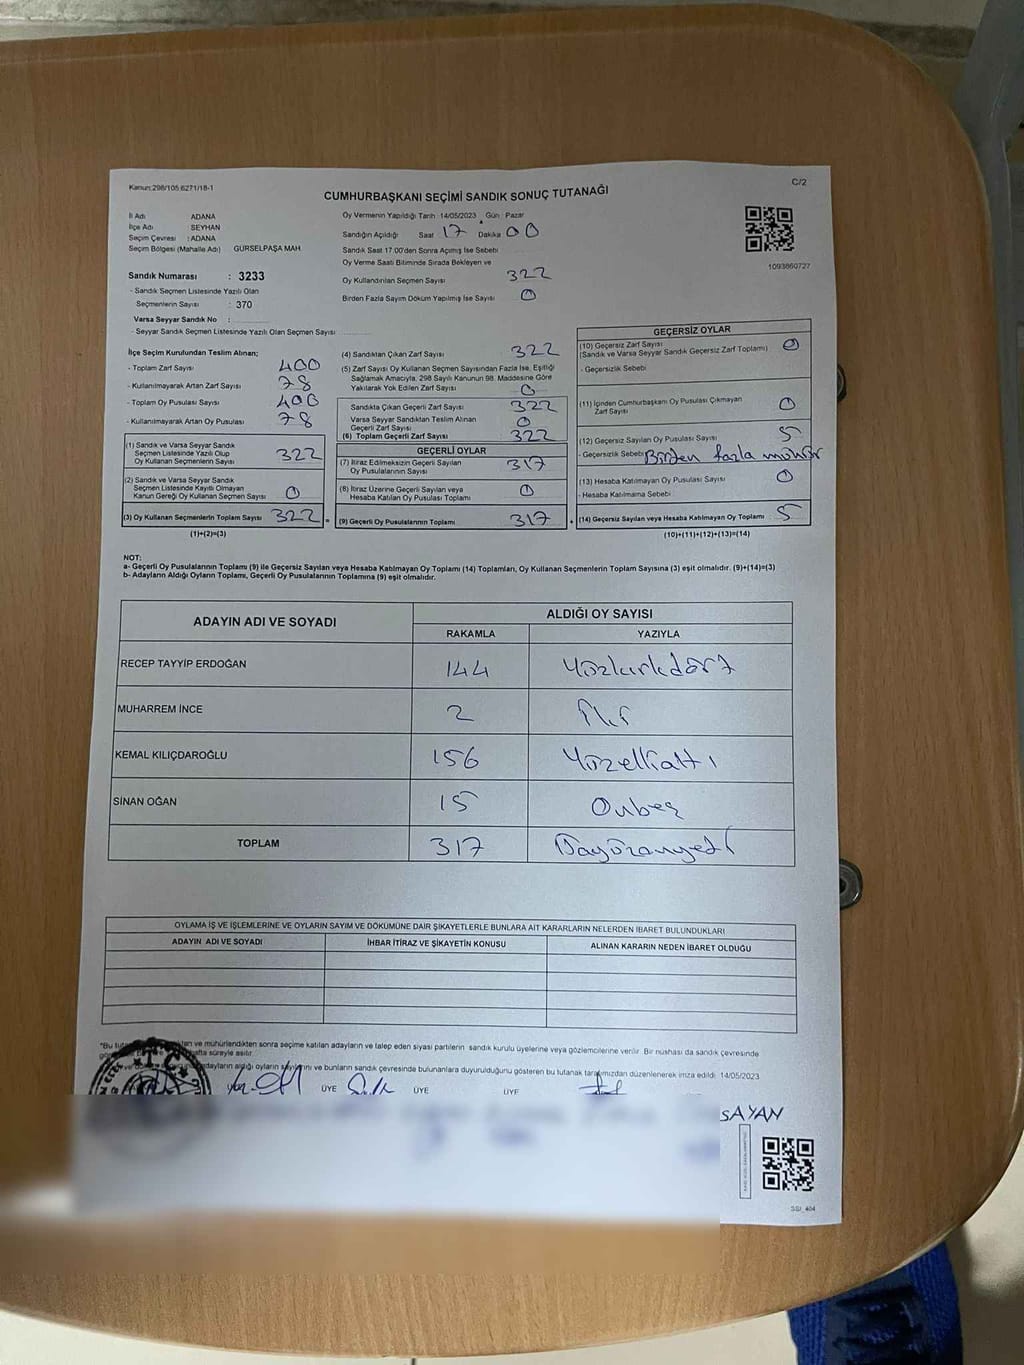 Kanun:298/105;6271/18-1
C/2
CUMHURBAŞKANI SEÇİMİ SANDIK SONUÇ TUTANAĞI
İl Adı ADANA
İlçe Adı : SEYHAN
Seçim Çevresi : ADANA
Seçim Bölgesi (Mahalle Adı) GÜRSELPAŞA MAH.
Oy Vermenin Yapıldığı Tarih 14/05/2023 Gün : Pazar
Sandığın Açıldığı Saat 17 Dakika 00
Sandık Saat 17:00'den Sonra Açılmış İse Sebebi
Oy Verme Saati Bitiminde Sırada Bekleyen ve
Oy Kullandırılan Seçmen Sayısı 322
Birden Fazla Sayım Döküm Yapılmış İse Sayısı 0
1093860727
Sandık Numarası : 3233
- Sandık Seçmen Listesinde Yazılı Olan
Seçmenlerin Sayısı : 370
Varsa Seyyar Sandık No :
- Seyyar Sandık Seçmen Listesinde Yazılı Olan Seçmen Sayısı
İlçe Seçim Kurulundan Teslim Alınan;
- Toplam Zarf Sayısı 400
- Kullanılmayarak Artan Zarf Sayısı 78
- Toplam Oy Pusulası Sayısı 400
- Kullanılmayarak Artan Oy Pusulası 78
(1) Sandık ve Varsa Seyyar Sandık
Seçmen Listesinde Yazılı Olup
Oy Kullanan Seçmenlerin Sayısı 322
(2) Sandık ve Varsa Seyyar Sandık
Seçmen Listesinde Kayıtlı Olmayan
Kanun Gereği Oy Kullanan Seçmen Sayısı 0
(3) Oy Kullanan Seçmenlerin Toplam Sayısı 322 =
(1)+(2)=(3)
(4) Sandıktan Çıkan Zarf Sayısı 322
(5) Zarf Sayısı Oy Kullanan Seçmen Sayısından Fazla İse, Eşitliği
Sağlamak Amacıyla, 298 Sayılı Kanunun 98. Maddesine Göre
Yakılarak Yok Edilen Zarf Sayısı 0
Sandıkta Çıkan Geçerli Zarf Sayısı 322
Varsa Seyyar Sandıktan Teslim Alınan
Geçerli Zarf Sayısı 0
(6) Toplam Geçerli Zarf Sayısı 322
GEÇERLİ OYLAR
(7) İtiraz Edilmeksizin Geçerli Sayılan
Oy Pusulalarının Sayısı 317
(8) İtiraz Üzerine Geçerli Sayılan veya
Hesaba Katılan Oy Pusulası Toplamı 0
(9) Geçerli Oy Pusulalarının Toplamı 317 +
GEÇERSİZ OYLAR
(10) Geçersiz Zarf Sayısı 0
(Sandık ve Varsa Seyyar Sandık Geçersiz Zarf Toplamı)
- Geçersizlik Sebebi
(11) İçinden Cumhurbaşkanı Oy Pusulası Çıkmayan
Zarf Sayısı 0
(12) Geçersiz Sayılan Oy Pusulası Sayısı 5
- Geçersizlik Sebebi Birden fazla mühür
(13) Hesaba Katılmayan Oy Pusulası Sayısı 0
- Hesaba Katılmama Sebebi
(14) Geçersiz Sayılan veya Hesaba Katılmayan Oy Toplamı 5
(10)+(11)+(12)+(13)=(14)
NOT:
a- Geçerli Oy Pusulalarının Toplamı (9) ile Geçersiz Sayılan veya Hesaba Katılmayan Oy Toplamı (14) Toplamları, Oy Kullanan Seçmenlerin Toplam Sayısına (3) eşit olmalıdır. (9)+(14)=(3)
b- Adayların Aldığı Oyların Toplamı, Geçerli Oy Pusulalarının Toplamına (9) eşit olmalıdır.
ADAYIN ADI VE SOYADI ALDIĞI OY SAYISI
RAKAMLA YAZIYLA
RECEP TAYYİP ERDOĞAN 144 Yüzkırkdört
MUHARREM İNCE 2 İki
KEMAL KILIÇDAROĞLU 156 Yüzellialtı
SİNAN OĞAN 15 Onbeş
TOPLAM 317
OYLAMA İŞ VE İŞLEMLERİNE VE OYLARIN SAYIM VE DÖKÜMÜNE DAİR ŞİKAYETLERLE BUNLARA AİT KARARLARIN NELERDEN İBARET BULUNDUKLARI
ADAYIN ADI VE SOYADI İHBAR İTİRAZ VE ŞİKAYETİN KONUSU ALINAN KARARIN NEDEN İBARET OLDUĞU
ve mühürlendikten sonra seçime katılan adayların ve talep eden siyasi partilerin sandık kurulu üyelerine veya gözlemcilerine verilir. Bir nüshası da sandık çevresinde
hafta süreyle asılır.
adayların aldığı oyların sayılarını ve bunların sandık çevresinde bulunanlara duyurulduğunu gösteren bu tutanak tarafımızdan düzenlenerek imza edildi. 14/05/2023
T.C.
ÜYE ÜYE ÜYE
SAYAN
SSI_404